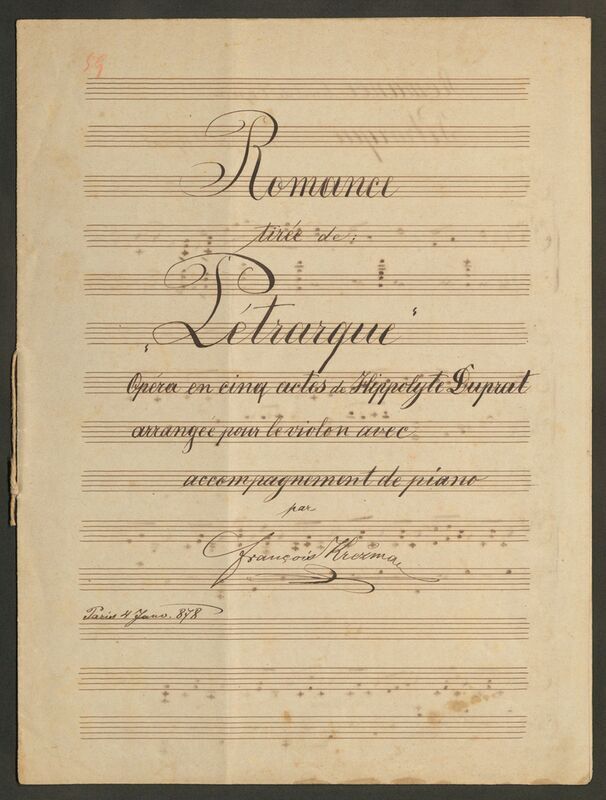 59
Romance
tirée de:
„Pétrarque“
Opéra en cinq actes de Hippolyte Duprat
arrangée pour le violon avec
accompagnement de piano
par
François Krezma
Paris 4 Janv. 878